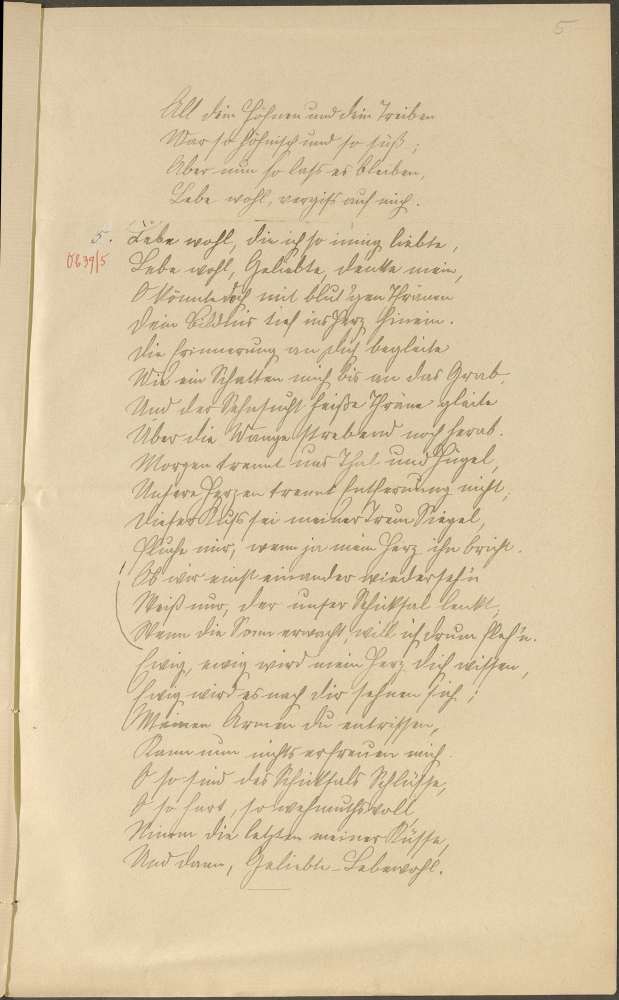 5
All dein Höhnen und dein Treiben
War so höhnisch und so süß;
Aber nun so lass es bleiben,
Lebe wohl, vergiß auch mich.
5. Lebe wohl, die ich so innig liebte,
O639/5 Lebe wohl, Geliebte, denke mein,
O könnte doch mit blut'gen Thränen
Dein Bildnis tief ins Herz hinein.
Die Erinnerung an dich begleite
Wie ein Schatten mich bis an das Grab,
Und der Sehnsucht heiße Thräne gleite
Über die Wange strebend noch herab.
Morgen trennt uns Thal und Hügel,
Unsere Herzen trennt Entfernung nicht,
Dieser Kuß sei meiner Treue Siegel,
Fluche mir, wenn ja mein Herz ihn bricht.
! Ob wir einst einander wiederseh'n
Weiß nur, der unser Schicksal lenkt,
Wenn die Sonn erwacht, will ich drum fleh'n.
Ewig, ewig wird mein Herz dich missen,
Ewig wird es nach dir sehnen sich;
Meinen Armen du entrissen,
Kann nun nichts erfreuen mich.
O so sind des Schicksals Schlüsse,
O so hart, so wehmuthsvoll,
Nimm die letzten meiner Küsse,
Und dann, Geliebte - Lebewohl.